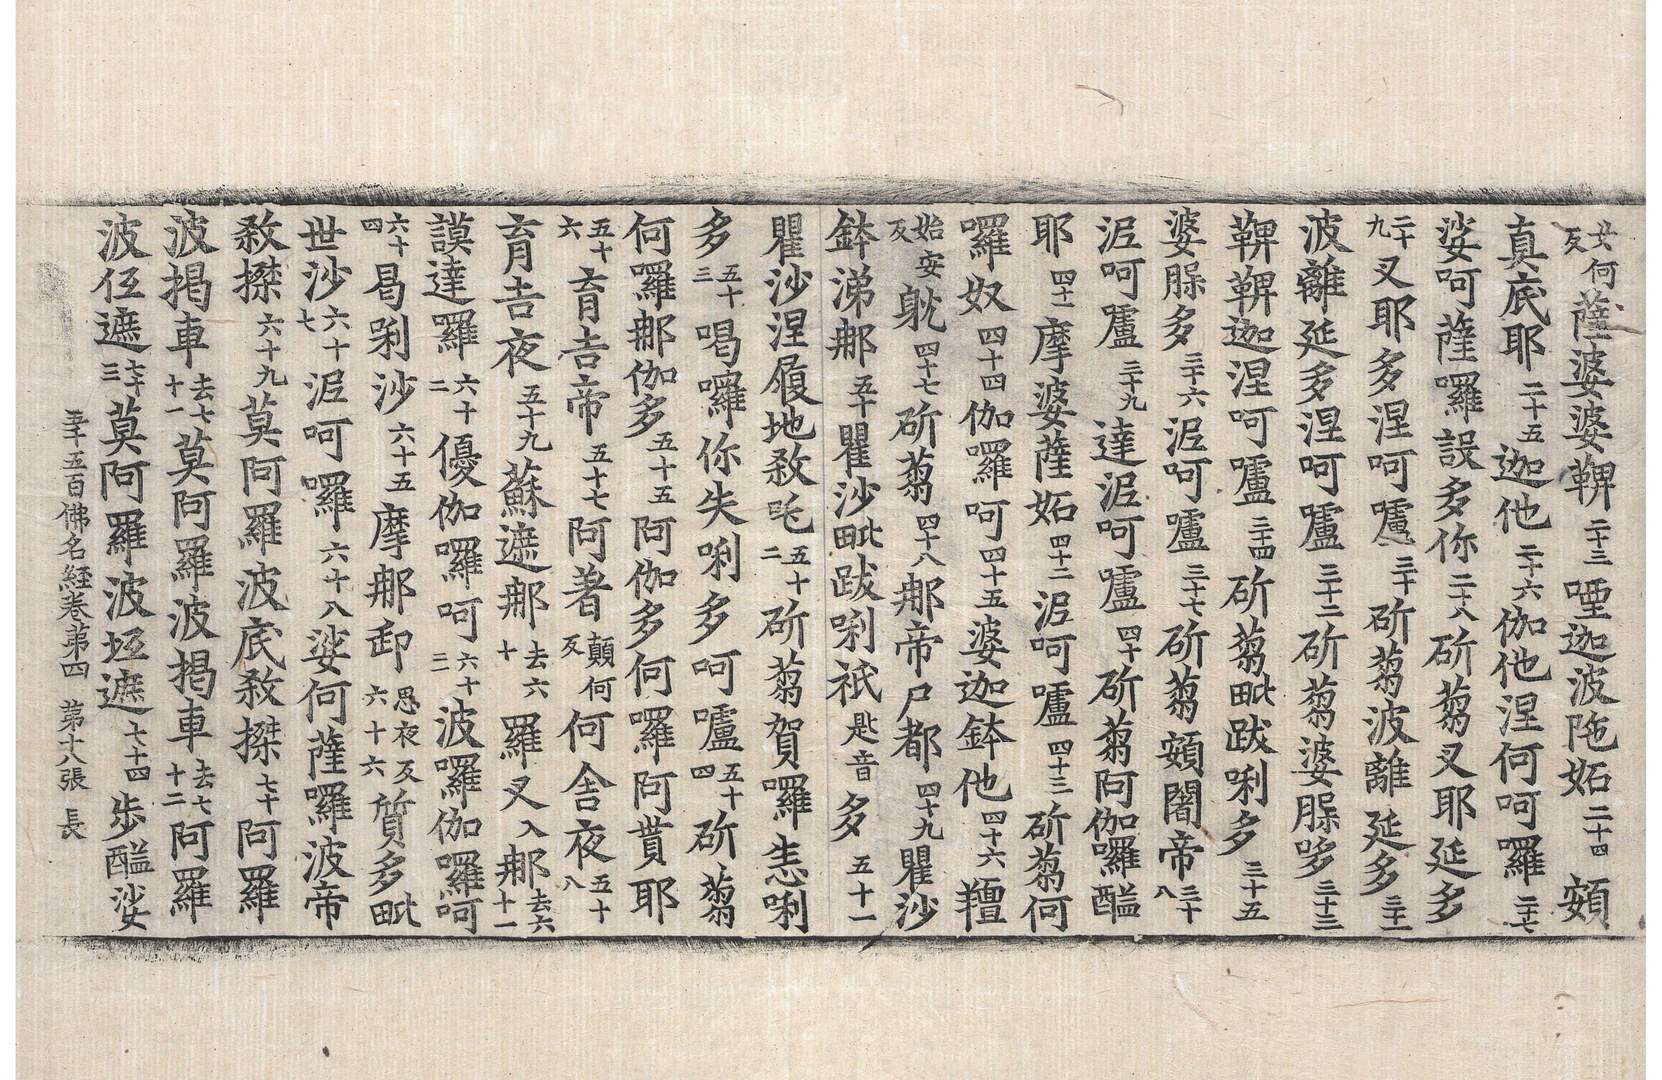 廾何反薩婆婆鞞二十三堙迦波陁妬二十四頞
真底耶二十五迦他二十六伽他涅何呵羅二十七
娑呵薩囉設多你二十八斫蒭叉耶延多
二十九叉耶多涅呵嚧三十斫蒭波離延多三十一
波離延多涅呵嚧三十二斫蒭婆臊哆三十三
鞞鞞迦涅呵嚧三十四斫蒭毗跋唎多三十五
婆臊多三十六泥呵嚧三十七斫蒭頞闍帝三十八
泥呵嚧三十九達泥呵嚧四十斫蒭阿伽囉醯
耶四十一摩婆薩妬四十二泥呵嚧四十三斫蒭何
囉奴四十四伽囉呵四十五婆迦鉢他四十六羶
始安反躭四十七斫蒭四十八那帝尸都四十九瞿沙
鉢涕那五十瞿沙毗跋唎祇匙音多五十一
瞿沙涅履地敹五十二斫蒭賀囉恚唎
多五十三喝囉你失唎多呵嚧五十四斫蒭
何囉那伽多五十五阿伽多何囉阿貰耶
五十六育吉帝五十七阿著顛何反何舍夜五十八
育吉夜五十九蘇遮那去六十羅叉入那去六十一
謨達羅六十二優伽囉呵六十三波囉伽囉呵
六十四曷唎沙六十五摩那卸思夜反六十六質多毗
世沙六十七泥呵囉六十八娑何薩囉波帝
敹搩六十九莫阿羅波底敹搩七十阿羅
波揭車去七十一莫阿羅波揭車去七十二阿羅
波伍遮七十三莫阿羅波坘遮七十四步醯娑
五千五百佛名經卷第四 第十八張 長